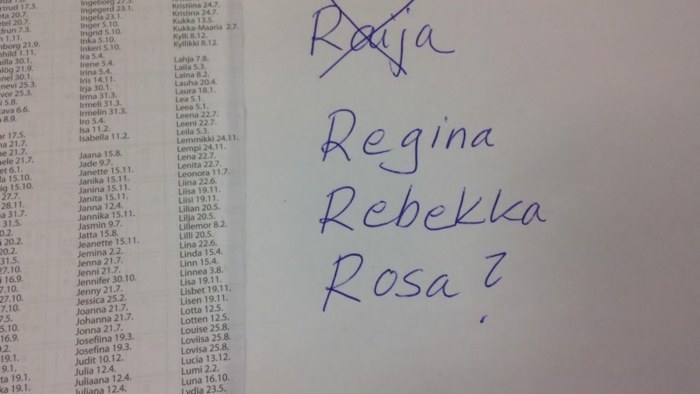 rtrud 17.3.
drun 7.3.
1.11.
nborg 21.9.
hild 1.11.
30.1.
30.1.
25.3.
25.3.
5.8.
6.6.
8.9.
17.5.
21.7.
21.7.
21.7.
6.1.
15.10.
15.10.
27.7.
28.11.
31.7.
31.5.
20.2.
20.2.
31.5.
27.10.
16.9.
27.10.
5.10.
16.9.
19.1.
19.1.
19.1.
Ingeborg 27.3.
Ingegerd 23.1.
Ingela 23.1.
Inger 5.10.
Ingrid 5.10.
Inka 5.10.
Inkeri 5.10.
Ira 5.4.
Irene 5.4.
Irina 5.4.
Iris 14.11.
Irja 30.1.
Irma 31.3.
Irmeli 31.3.
Irmelin 31.3.
Iro 5.4.
Isa 11.2.
Isabella 11.2.
Jaana 15.8.
Jade 9.7.
Janette 15.11.
Janika 15.11.
Janina 15.11.
Janita 15.11.
Janna 12.4.
Jannika 15.11.
Jasmin 9.7.
Jatta 15.8.
Jeanette 15.11.
Jemina 2.2.
Jenna 21.7.
Jenni 21.7.
Jennifer 30.10.
Jenny 21.7.
Jessica 25.2.
Joanna 21.7.
Johanna 21.7.
Jonna 21.7.
Josefiina 19.3.
Josefina 19.3.
Judit 10.12.
Julia 12.4.
Juliaana 12.4.
Juliana 12.4.
Kristiina 24.7.
Kristina 24.7.
Kukka 13.5.
Kukka-Maaria 2.7.
Kylli 8.12.
Kyllikki 8.12.
Lahja 7.8.
Laila 5.3.
Laina 8.2.
Lauha 20.4.
Laura 18.1.
Lea 5.1.
Leea 5.1.
Leena 22.7.
Leeni 22.7.
Leila 5.3.
Lemmikki 24.11.
Lempi 24.11.
Lena 22.7.
Lenita 22.7.
Leonora 11.7.
Liina 22.6.
Liisa 19.11.
Liisi 19.11.
Lilian 20.5.
Lilja 20.5.
Lillemor 8.2.
Lilli 20.5.
Lina 22.6.
Linda 15.4.
Linn 15.4.
Linnea 3.8.
Lisa 19.11.
Lisbet 19.11.
Lisen 19.11.
Lotta 12.5.
Lotten 12.5.
Louise 25.8.
Loviisa 25.8.
Lovisa 25.8.
Lucia 13.12.
Lumi 2.2.
Luna 16.10.
Lydia 23.5.
Raija
Regina
Rebekka
Rosa?